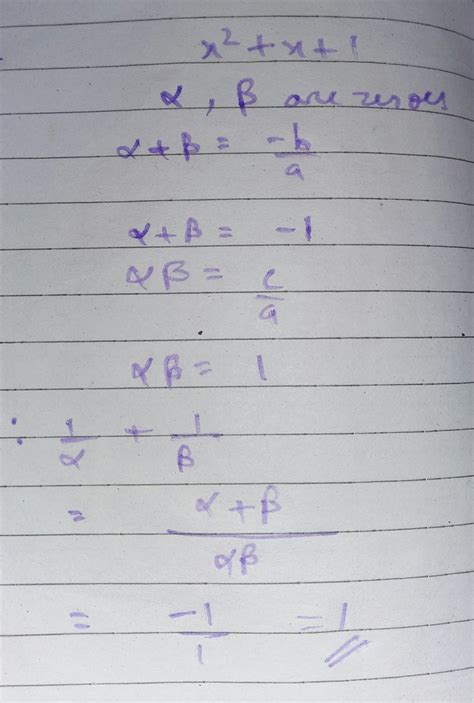 x² + x + 1
α , β are zeroes
α + β = -b/a
α + β = -1
αβ = c/a
αβ = 1
: 1/α + 1/β
= α + β / αβ
= -1/1 = 1